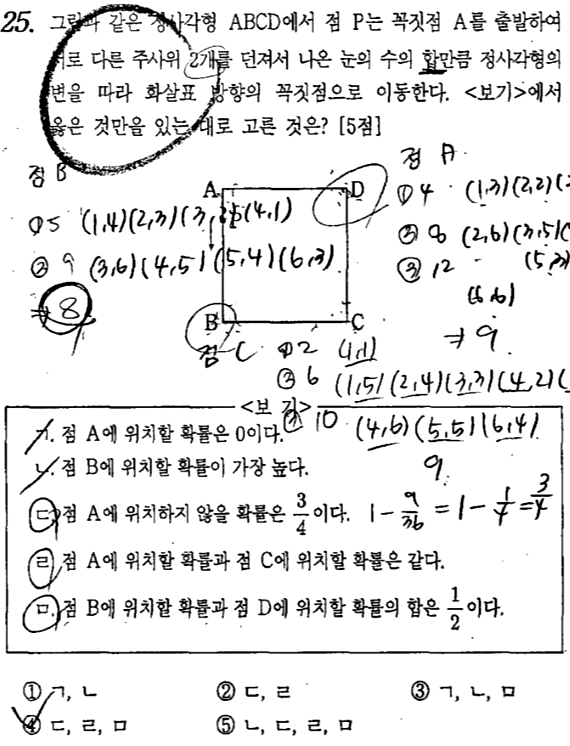 25. 그림과 같은 정사각형 ABCD에서 점 P는 꼭짓점 A를 출발하여
서로 다른 주사위 2개를 던져서 나온 눈의 수의 합만큼 정사각형의
변을 따라 화살표 방향의 꼭짓점으로 이동한다. <보기>에서
옳은 것만을 있는 대로 고른 것은? [5점]
점 B
점 A
A
D
① 5 (1,4)(2,3)(3, (4,1)
① 4 (1,3)(2,2)(3
② 9 (3,6)(4,5)(5,4)(6,3)
② 8 (2,6)(3,5)(
⇒ 8
③ 12 (5,3)
(6,6)
⇒ 9
B
C
점 C ① 2 (1,1)
② 6 (1,5)(2,4)(3,3)(4,2)(
10 (4,6)(5,5)(6,4)
9
<보 기>
ㄱ. 점 A에 위치할 확률은 0이다.
ㄴ. 점 B에 위치할 확률이 가장 높다.
ㄷ. 점 A에 위치하지 않을 확률은 3/4이다. 1 - 9/36 = 1 - 1/4 = 3/4
ㄹ. 점 A에 위치할 확률과 점 C에 위치할 확률은 같다.
ㅁ. 점 B에 위치할 확률과 점 D에 위치할 확률의 합은 1/2이다.
① ㄱ, ㄴ ② ㄷ, ㄹ ③ ㄱ, ㄴ, ㅁ
④ ㄷ, ㄹ, ㅁ ⑤ ㄴ, ㄷ, ㄹ, ㅁ